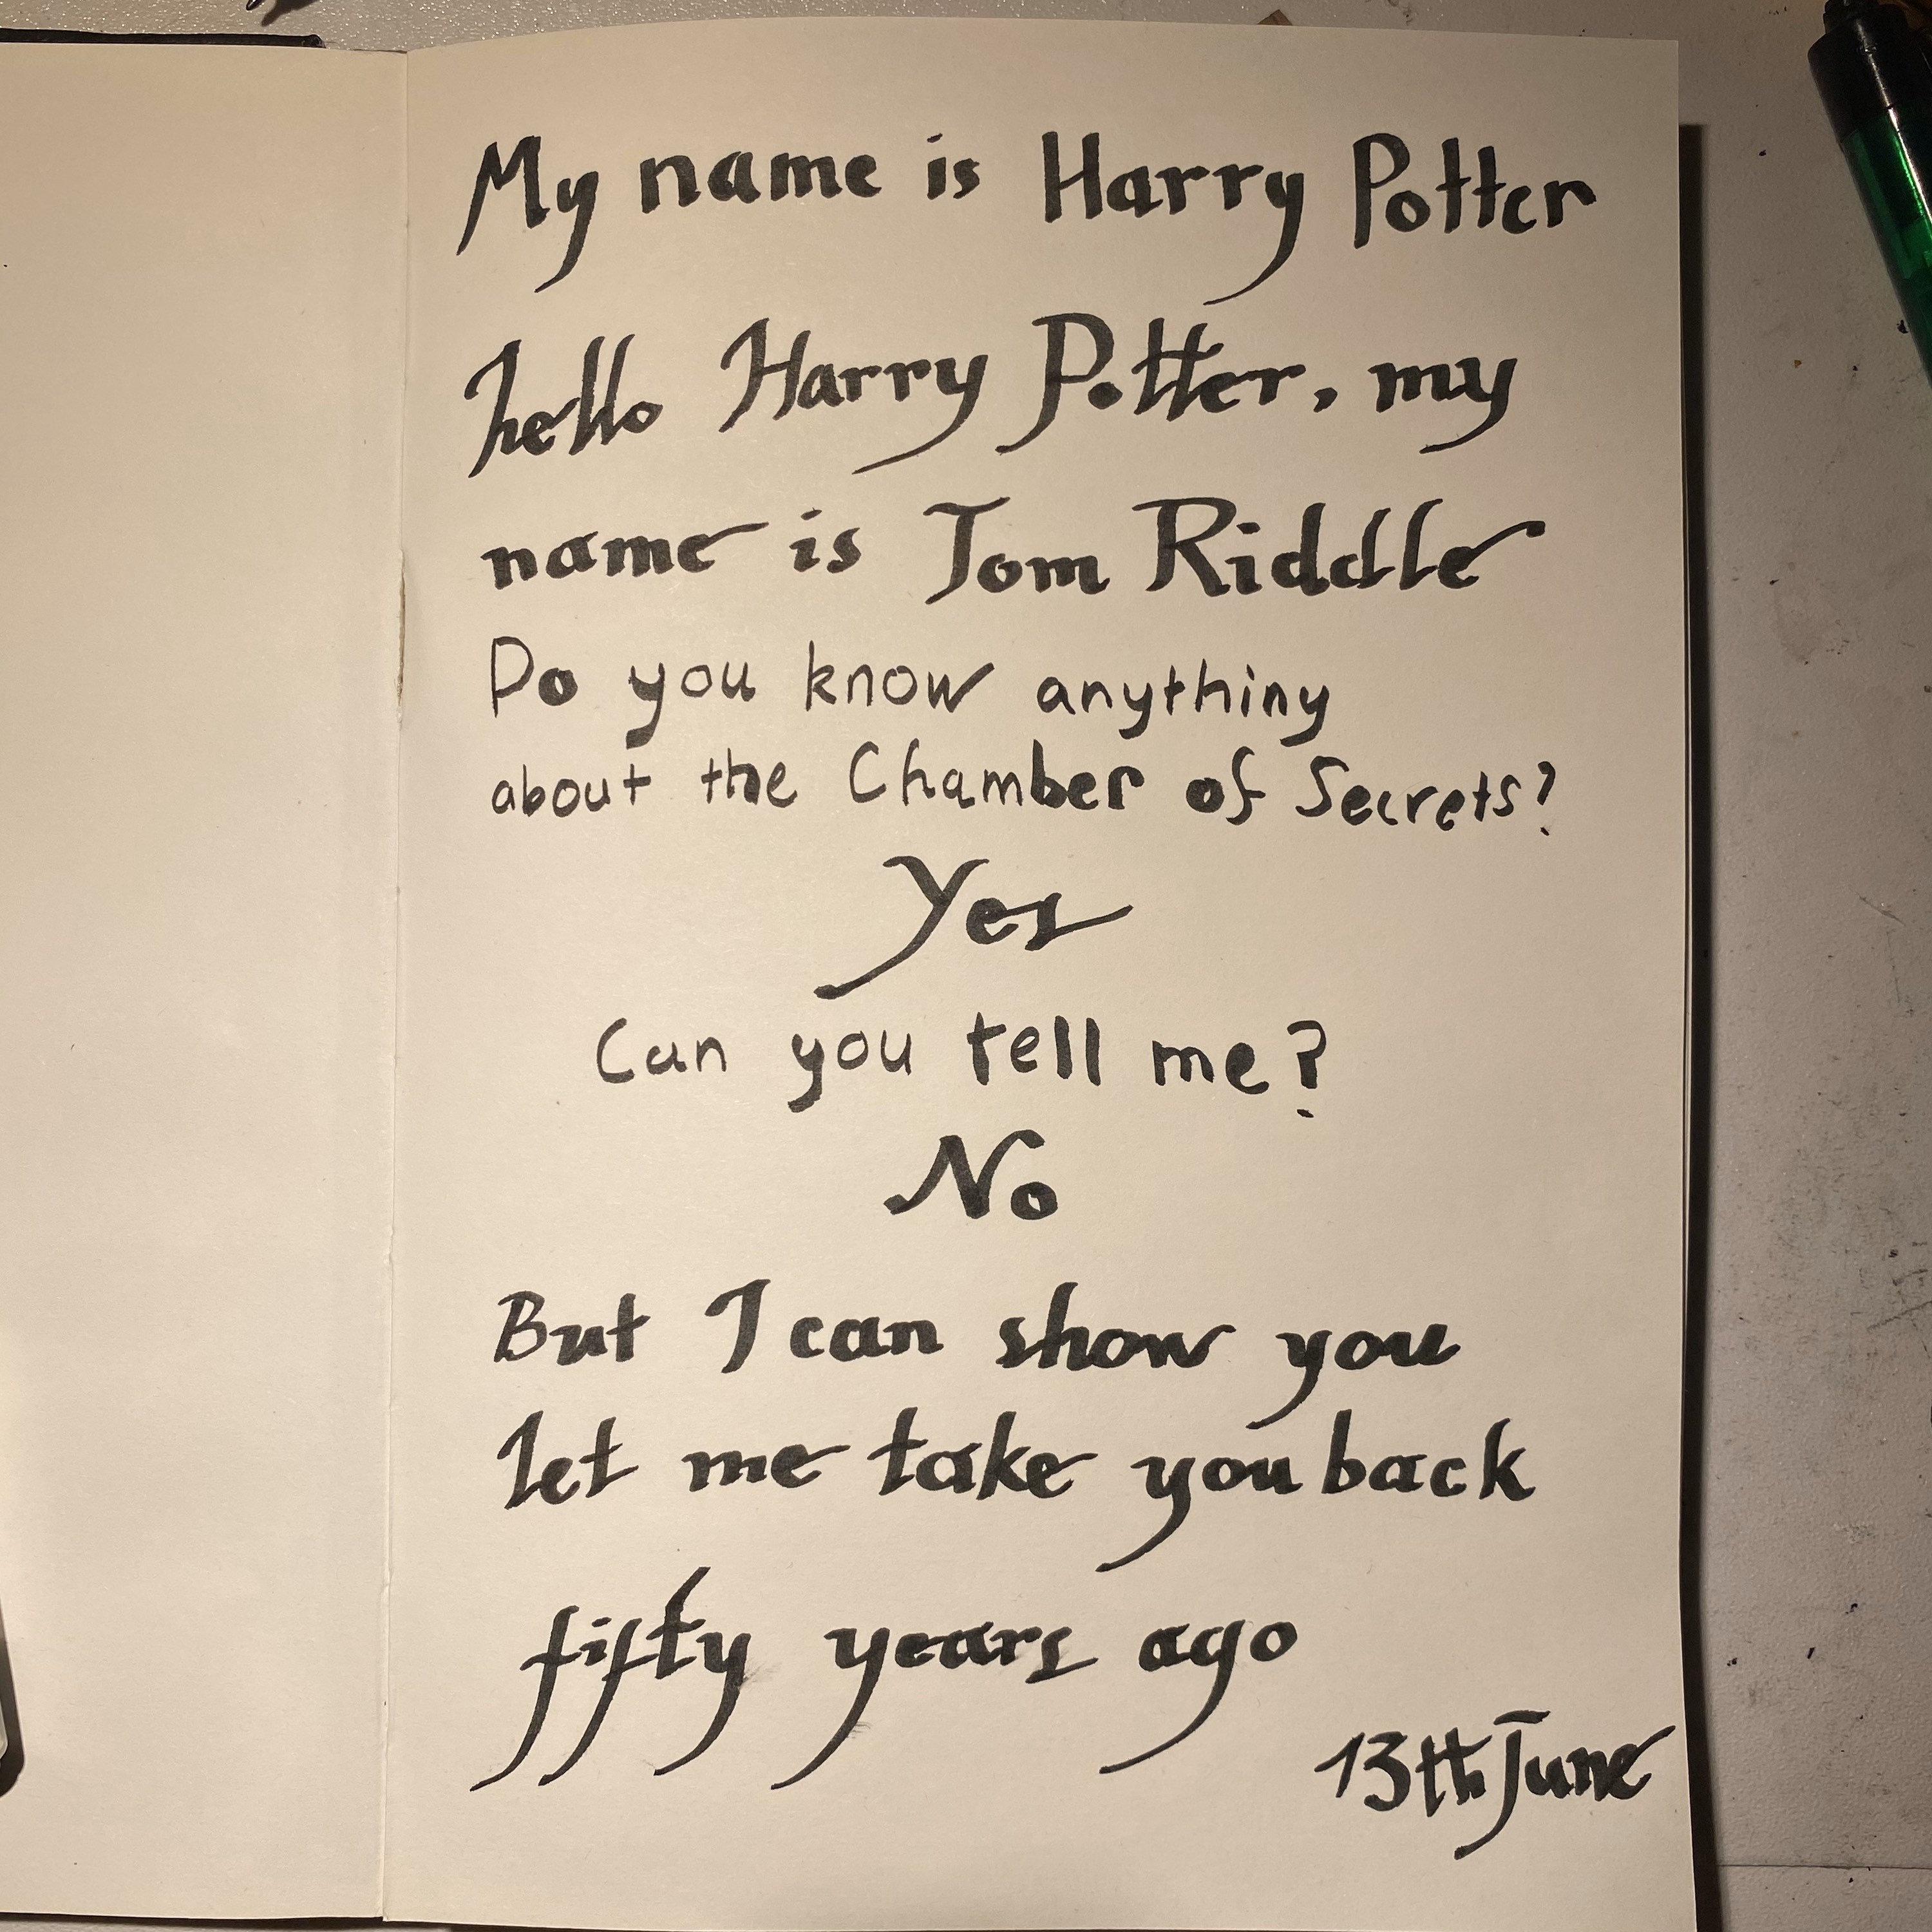 My name is Harry Potter
hello Harry Potter, my
name is Tom Riddle
Do you know anything
about the Chamber of Secrets?
Yes
Can you tell me?
No
But I can show you
let me take you back
fifty years ago
13th June